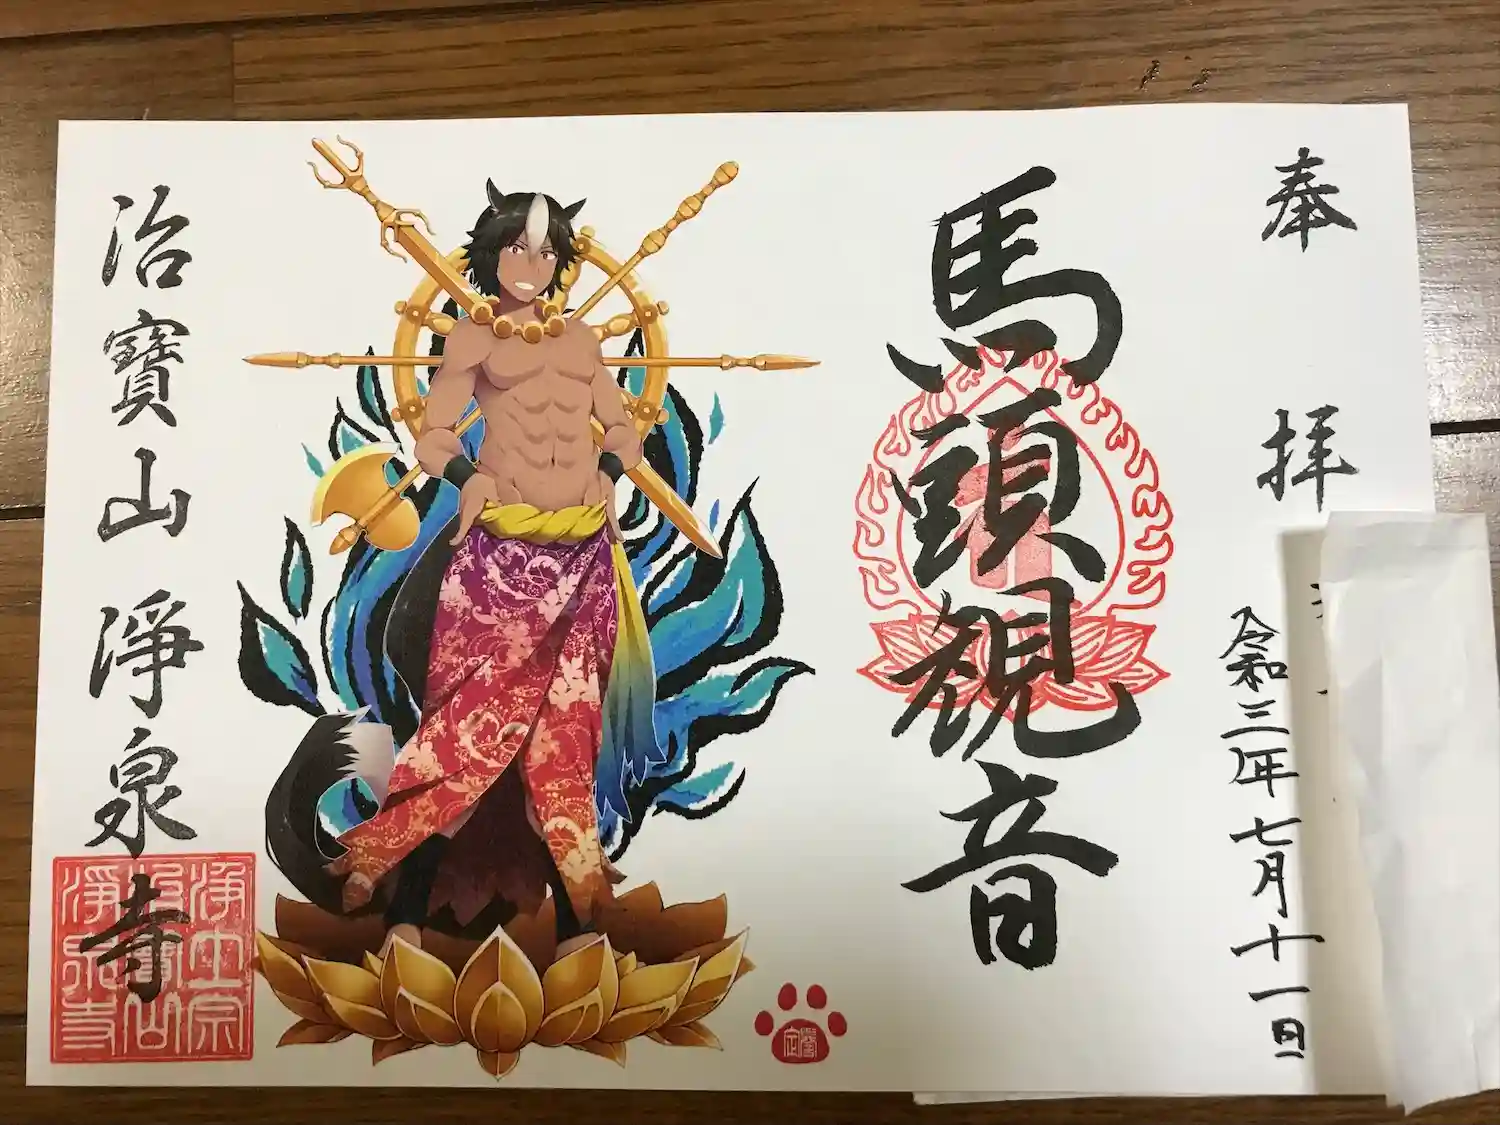 奉拝
令和三年七月十一日
馬頭観音
治寶山 淨泉寺
浄土宗
治寶山
淨泉寺